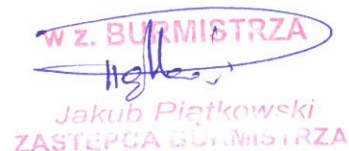 W Z. BURMISTRZA
Jakub Piątkowski
ZASTĘPCA BURMISTRZA